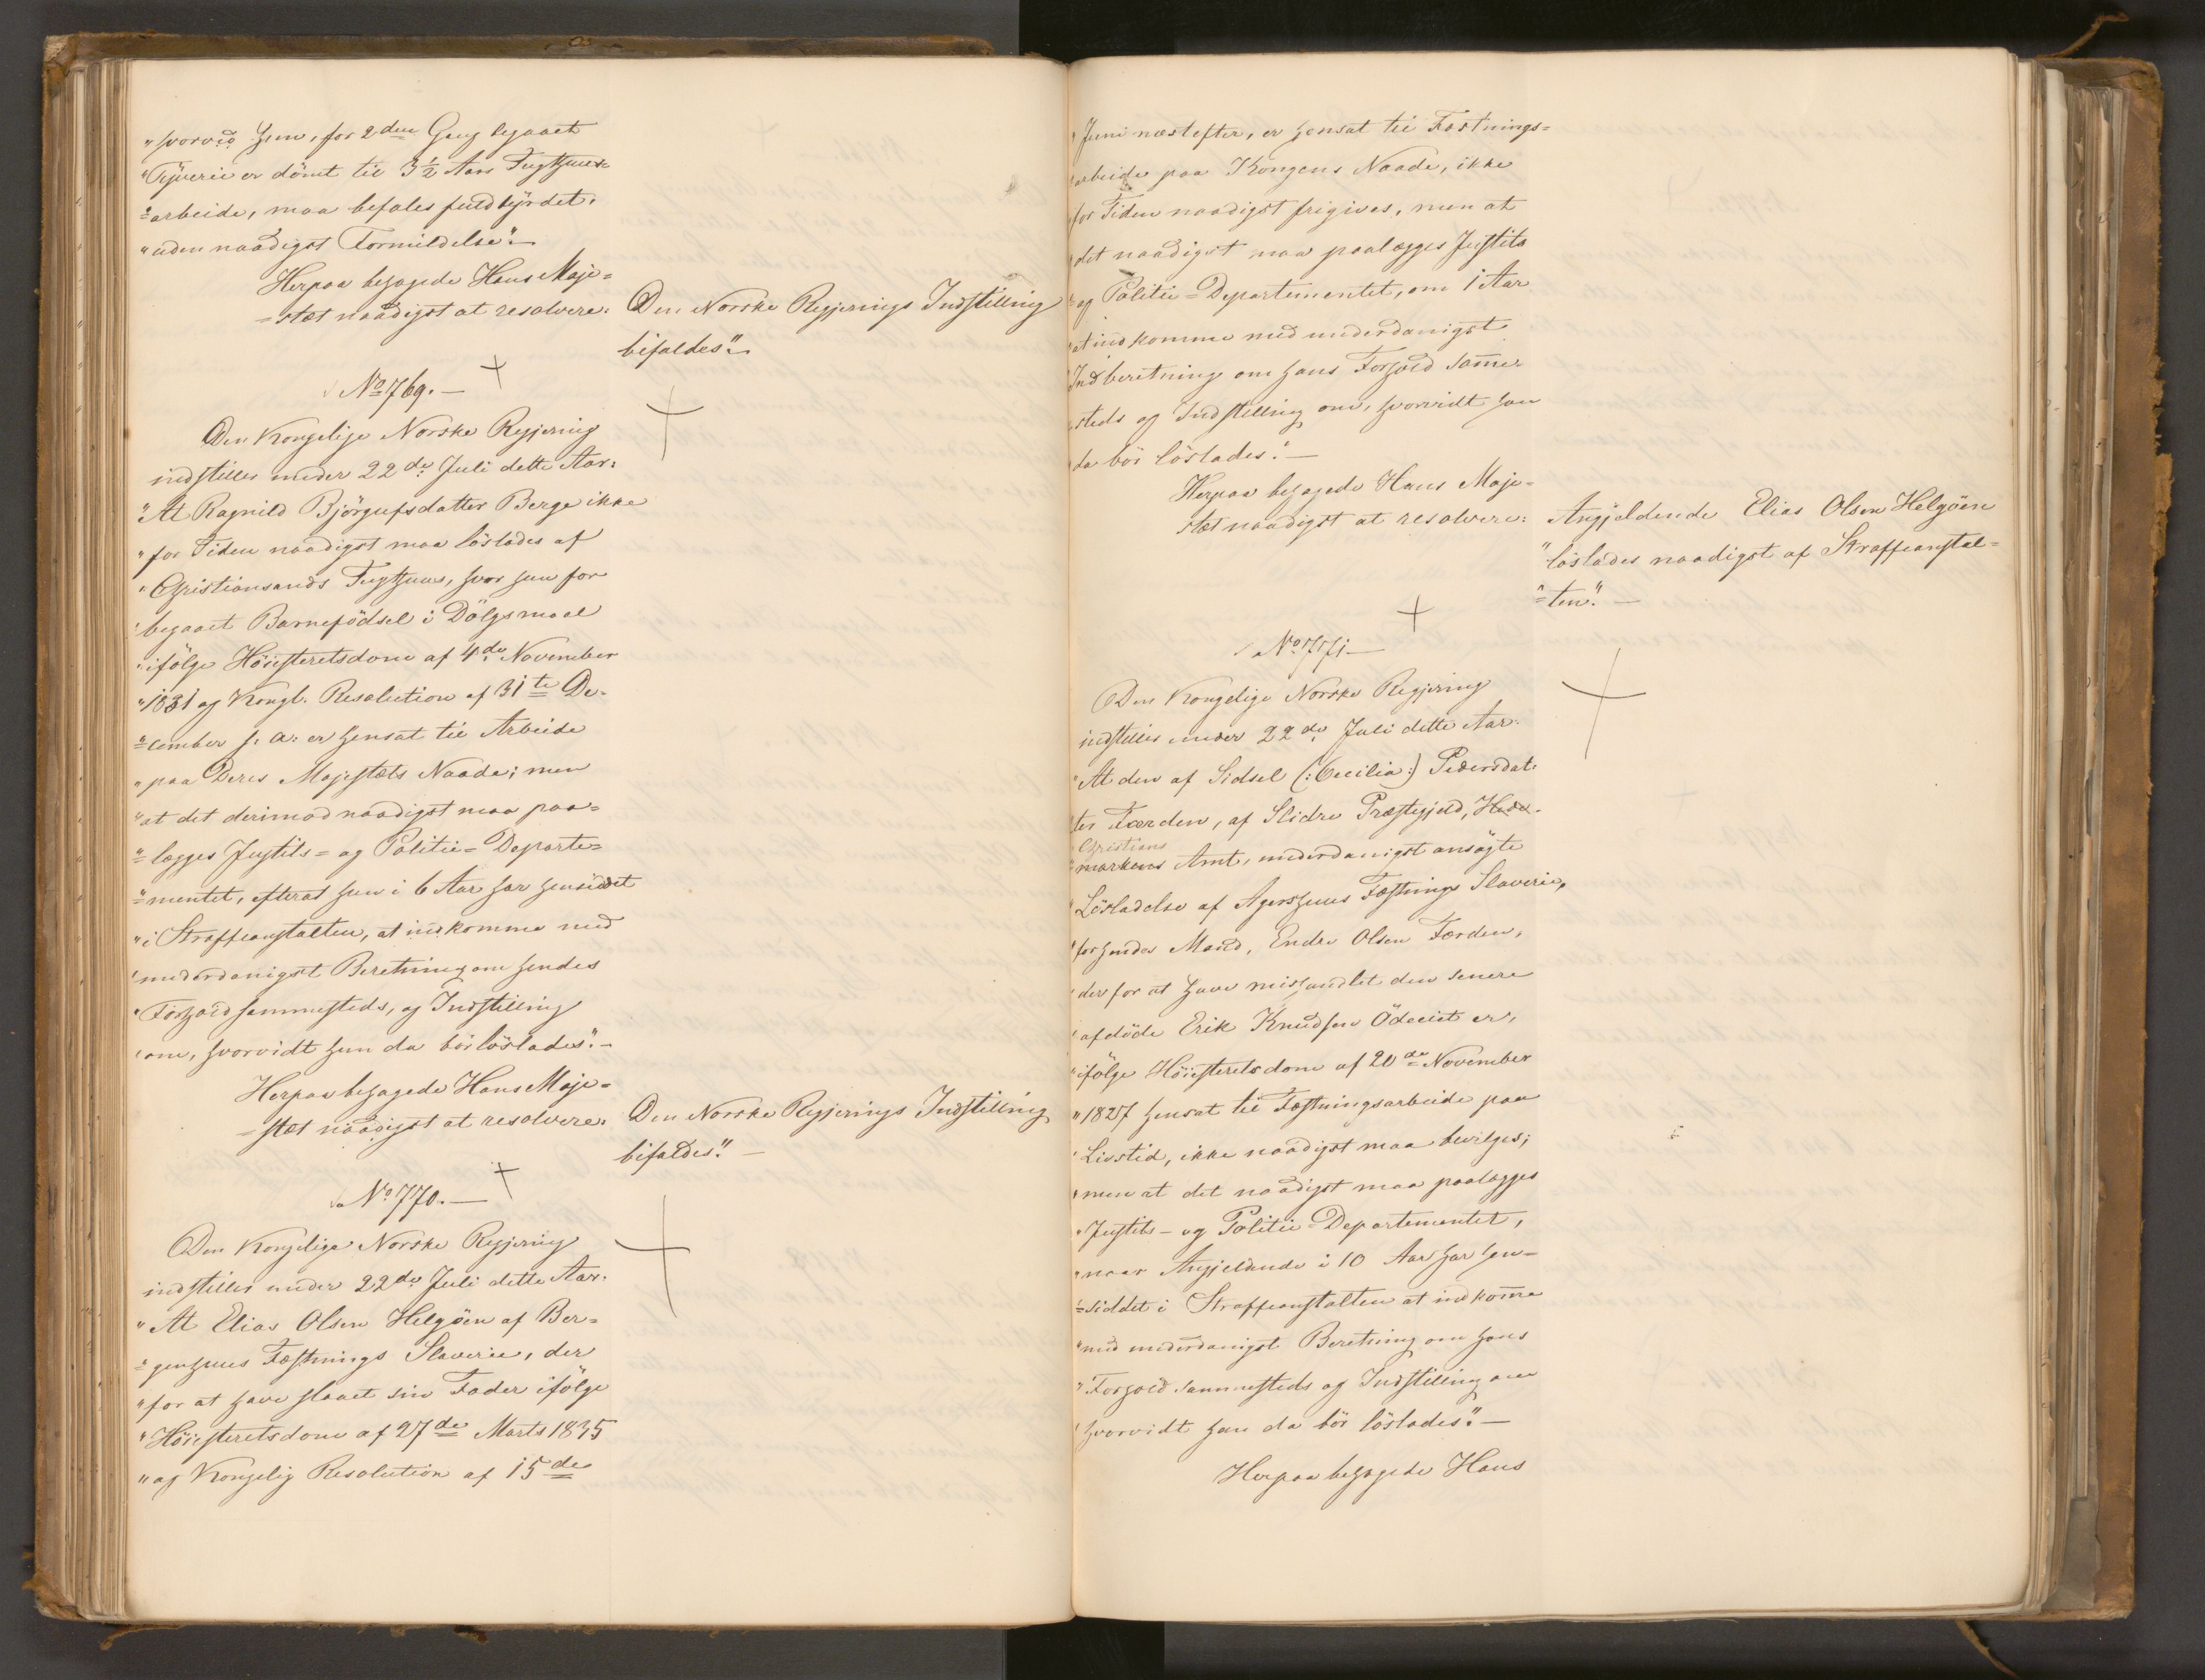 "hvorved hun, for 2den Gang begaaet
"Tyverie er dömt til 3½ Aars Tugthuus-
"=arbeide, maa befales fuldbyrdet,
"uden naadigst Formildelse".-
Herpaa behagede Hans Maje=
=stæt naadigst at resolvere:
Den Norske Regjerings Indstilling
bifaldes".
No 769.-
Den Kongelige Norske Regjering
indstiller under 22de Juli dette Aar:
"At Ragnild Björgufsdatter Berge ikke
"for Tiden naadigst maa löslades af
"Christiansands Tugthuus, hvor hun for
"begaaet Barnefödsel i Dölgsmaal
"ifölge Höiesteretsdom af 4de November
"1831 og Kongl. Resolution af 31te De-
"=cember s: a: er hensat til Arbeide
"paa Deres Majestæts Naade; men
"at det derimod naadigst maa paa=
"=lægges Justits= og Politie=Departe=
"=mentet, efterat hun i 6 Aar har hensiddet
"i Straffeanstalten, at indkomme med
"underdanigst Beretning om hendes
"Forhold sammesteds, og Indstilling
"om, hvorvidt hun da bör löslades".-
Herpaa behagede Hans Maje=
=stæt naadigst at resolvere:
Den Norske Regjerings Indstilling
bifaldes".-
No 770.-
Den Kongelige Norske Regjering
indstiller under 22de Juli dette Aar:
"At Elias Olsen Helgöen af Ber=
"=genhuus Fæstnings Slaverie, der
"for at have slaaet sin Fader ifölge
"Höiesteretsdom af 27de Marts 1835
"og Kongelig Resolution af 15de
"Juni næstefter, er hensat til Fæstnings=
"arbeide paa Kongens Naade, ikke
"for Tiden naadigst frigives, men at
"det naadigst maa paalægges Justits
"og Politie=Departementet, om 1 Aar
"at indkomme med underdanigst
"Indberetning om hans Forhold samme
"steds og Indstilling om, hvorvidt han
"da bör löslades".-
Herpaa behagede Hans Maje=
stæt naadigst at resolvere:
Angjeldende Elias Olsen Helgöen
"löslades naadigst af Straffeanstal=
"=ten".-
No 771-
Den Kongelige Norske Regjering
indstiller under 22de Juli dette Aar:
"At den af Sidsel (:Cecilia:) Pedersdat:
"ter Færden, af Slidre Præstegjeld, Hede-
Christians
"=markens Amt, underdanigst ansögte
"Lösladelse af Agershuus Fæstnings Slaverie,
"for hendes Mand, Endre Olsen Færden,
"der for at have mishandlet den senere
"afdöde Erik Knudsen Ödeeiet er,
"ifölge Höiesteretsdom af 20de November
"1827 hensat til Fæstningsarbeide paa
"Livstid, ikke naadigst maa bevilges;
"men at det naadigst maa paalægges
"Justits- og Politie-Departementet,
"naar Angjeldende i 10 Aar har hen=
"=siddet i Straffeanstalten at indkomme
"med underdanigst Beretning om hans
"Forhold sammesteds og Indstilling om
"hvorvidt han da bör löslades".-
Herpaa behagede Hans